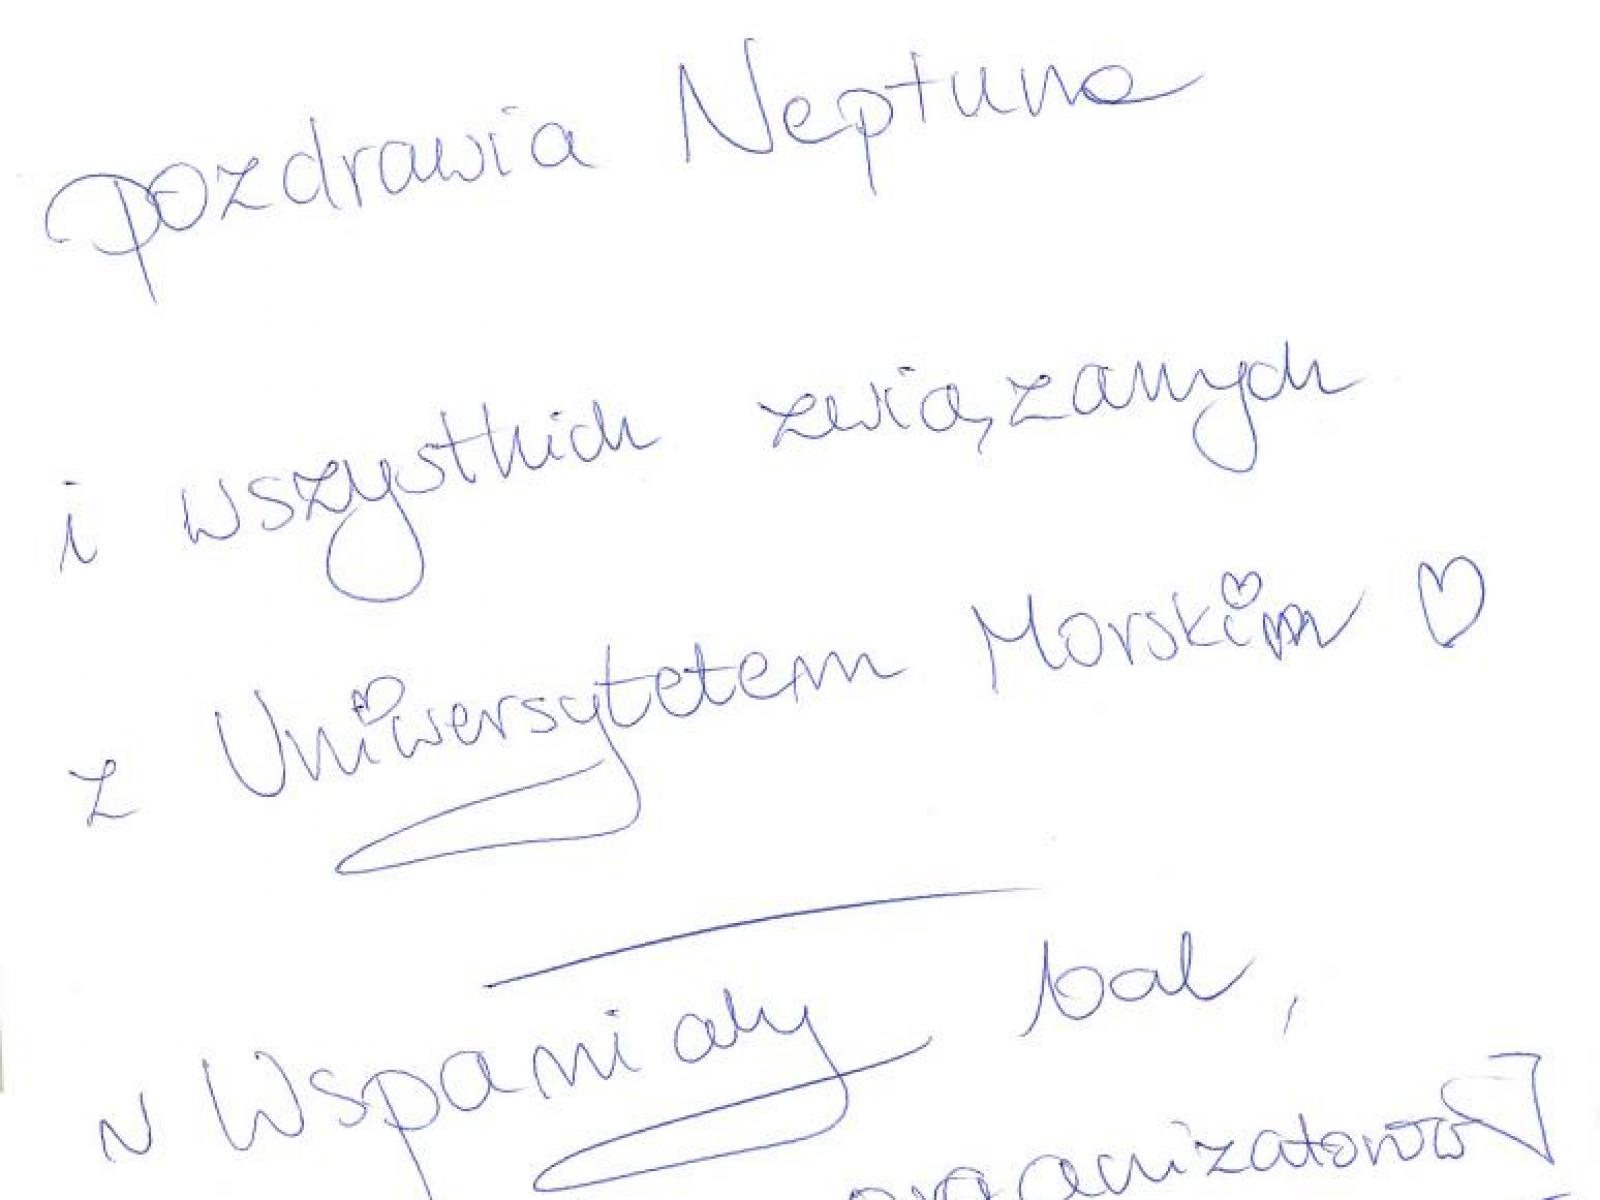 pozdrawia Neptuna
i wszystkich związanych
z Uniwersytetem Morskim ♡
Wspaniały bal,
organizatorów